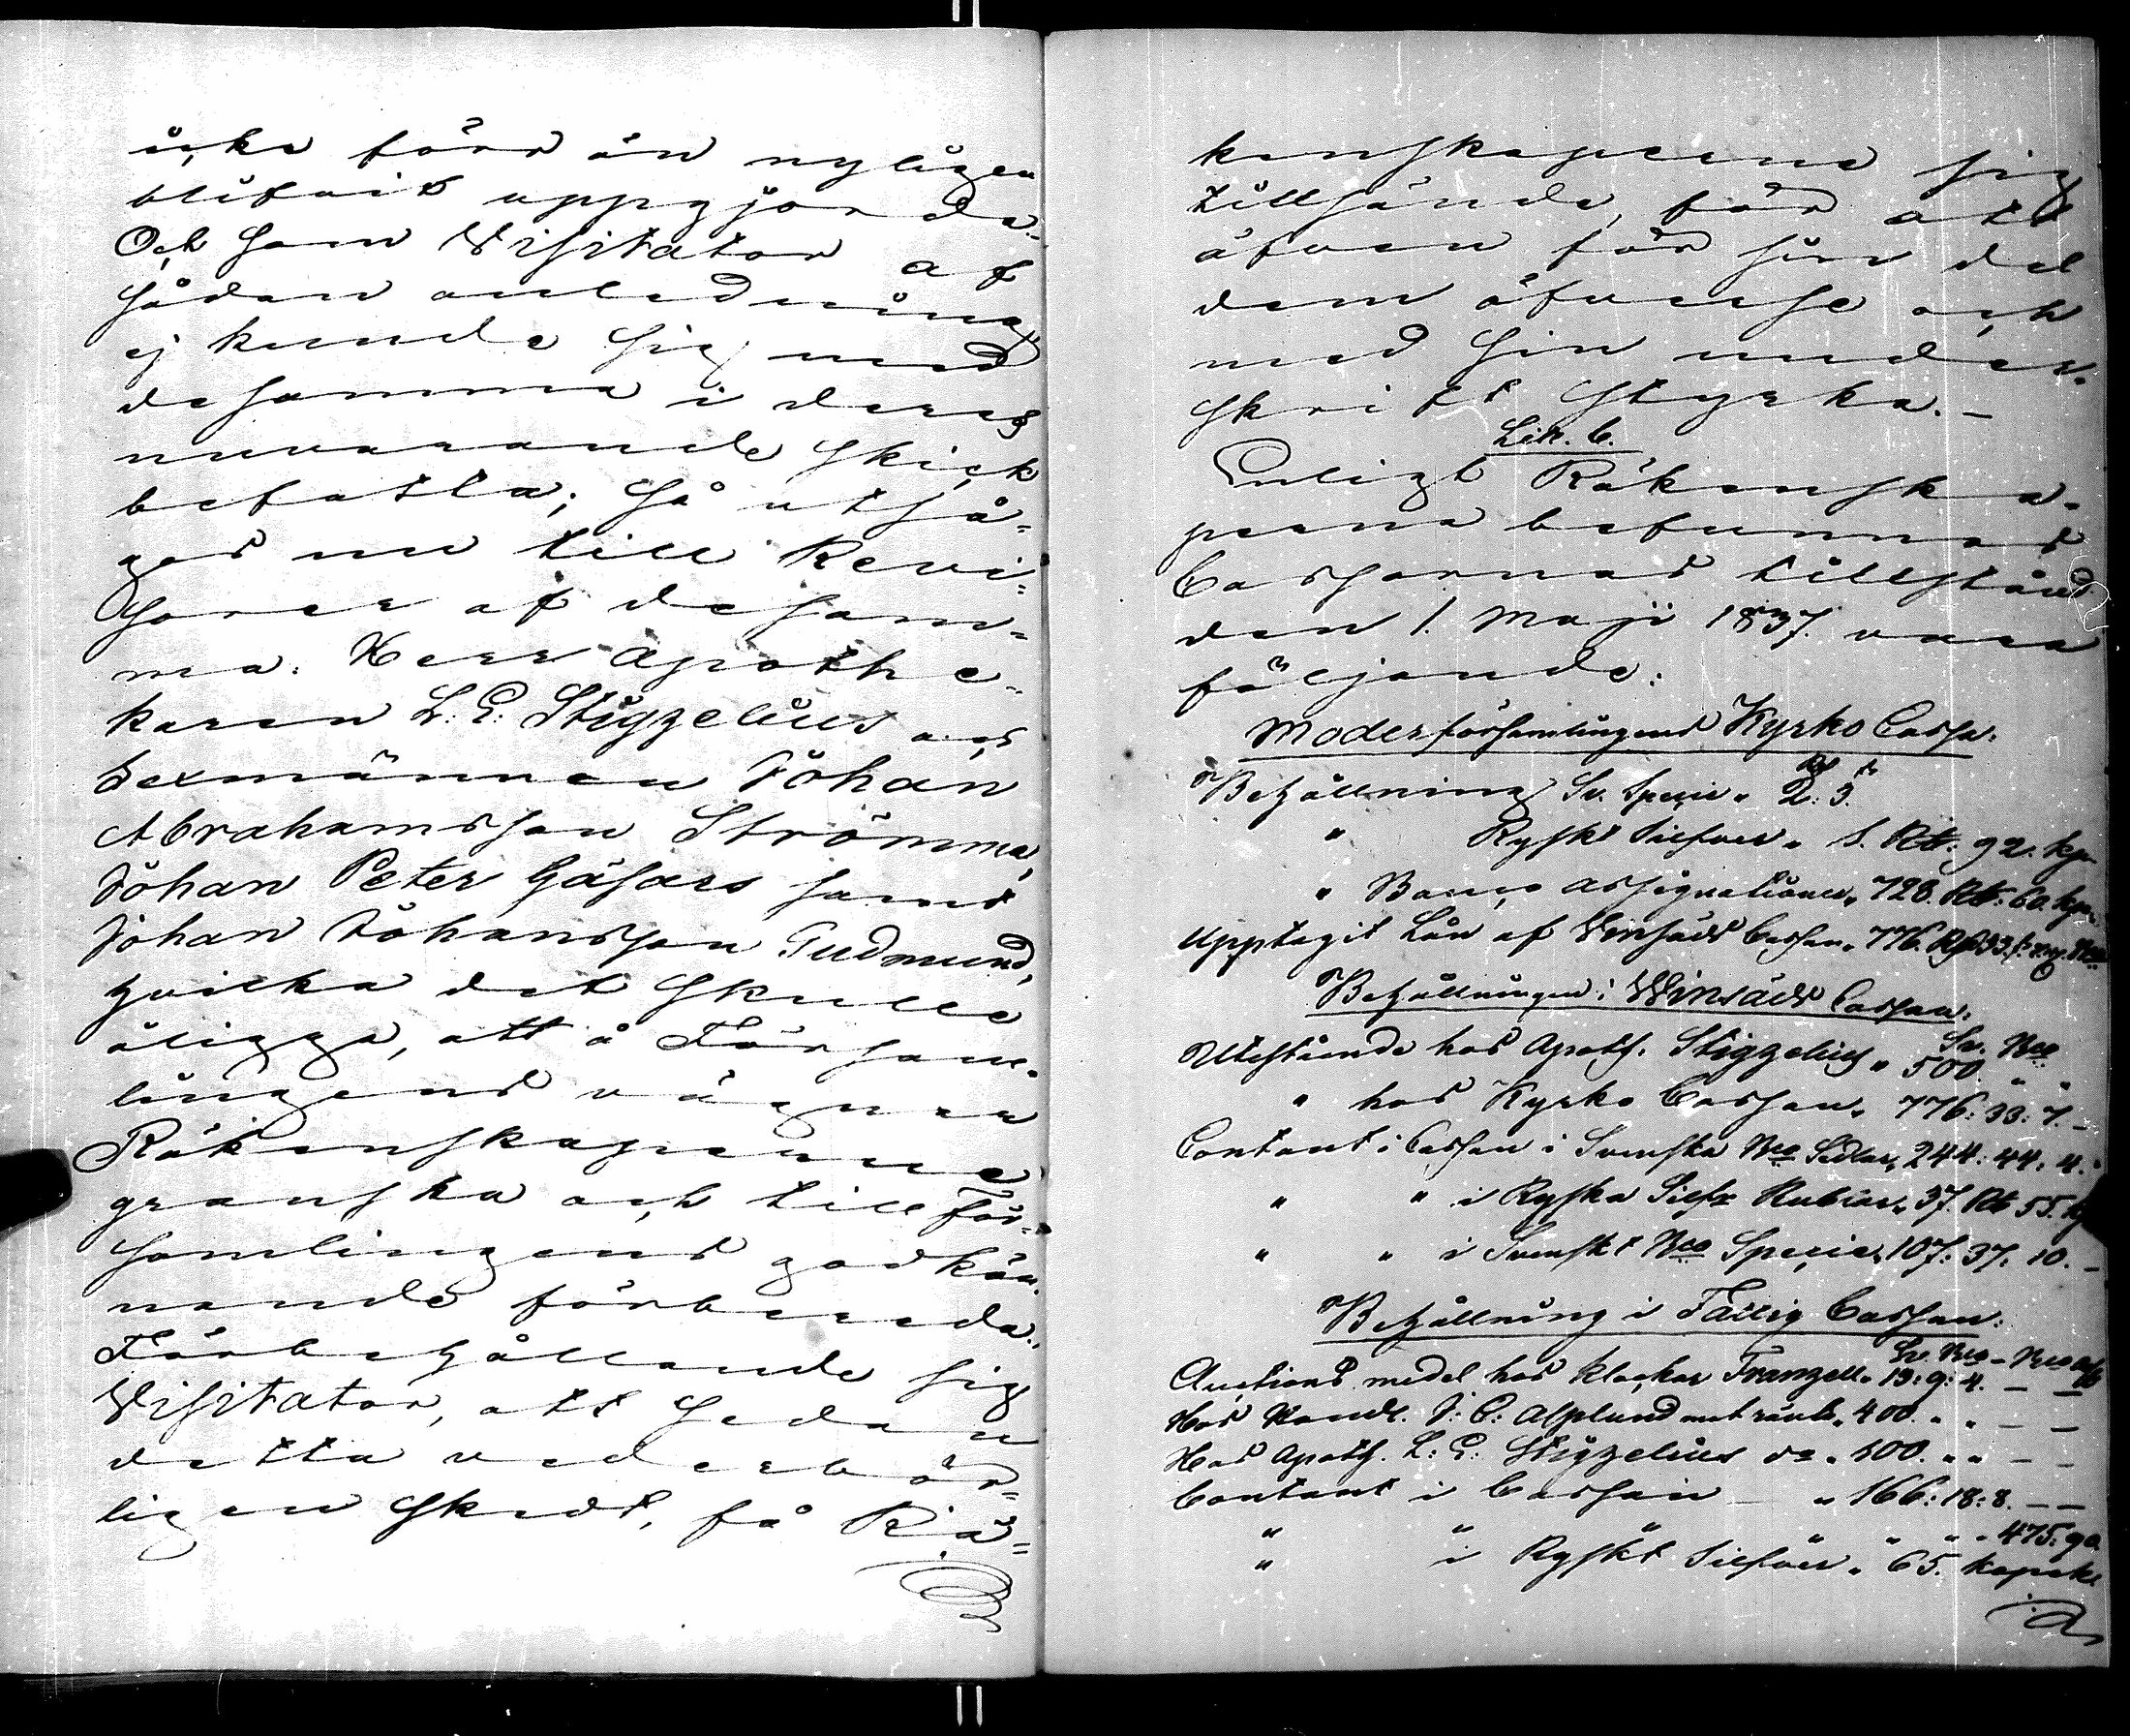 icke förr än nyligen
blifvit uppgjorde.
Och som Visitator af
sådan anledning
ej kunde sig med
desamma i deras
nuvarande skick
befatta; så utså-
gos nu till Revi-
sorer af desam-
ma: Herr Apothe-
karen L: E: Stigzelius och
Sexmännen Johan
Abrahamsson Strömma,
Johan Peter Gäsars samt
Johan Johansson Gudmunds,
hvilka det skulle
åligga, att å Försam-
lingens vägnar
Räkenskaperne
granska och till För-
samlingens godkän-
nande förbereda.
Förbehållande sig
Visitator, att sedan
detta vederbör-
ligen skedt, få Rä-
kenskaperne sig
tillsände, för att
äfven för sin del
dem öfverse och
med sin under-
skrift styrka.—
Lit. C.
Enligt Räkenska-
perne befunnos
Cassornas tillstånd
den 1. Maji 1837. vara
följande:
Moderförsamlingens Kyrko Cassa.
Behållning Sv. Specie " 2: 3.
" Ryskt Silfver " 1. Rub: 92. kop.
" Banco Assignationer " 728. Rub: 60. kop.
Upptagit Lån af Vinsäds Cassan " 776. Rd 33. s.
Behållningen i Vinsäds Cassan.
Sv. Bco
Utestående hos Apoth. Stigzelius " 500. " "
" hos Kyrko Cassan " 776: 33: 7.—
Contant i Cassan i Svenska Bco Sedlar " 244: 44: 4.
" " i Ryska Silfv Rubler " 37. Rub 55. k
" " i Svenskt Bco Specie " 107: 37. 10.—
Behållning i Fattig Cassan.
Sv. Bco — Bco Ass
Auctions medel hos Klockar Franzell " 13: 9: 4. — —
Hos Handl. J: C: Alplund mot ränta " 400. " " — —
Hos Apoth. L: E: Stigzelius do " 100. " " — —
Contant i Cassan — " 166: 18: 8. — —
" " " " " 475: 90
" i Ryskt Silfver " 65. kopek.